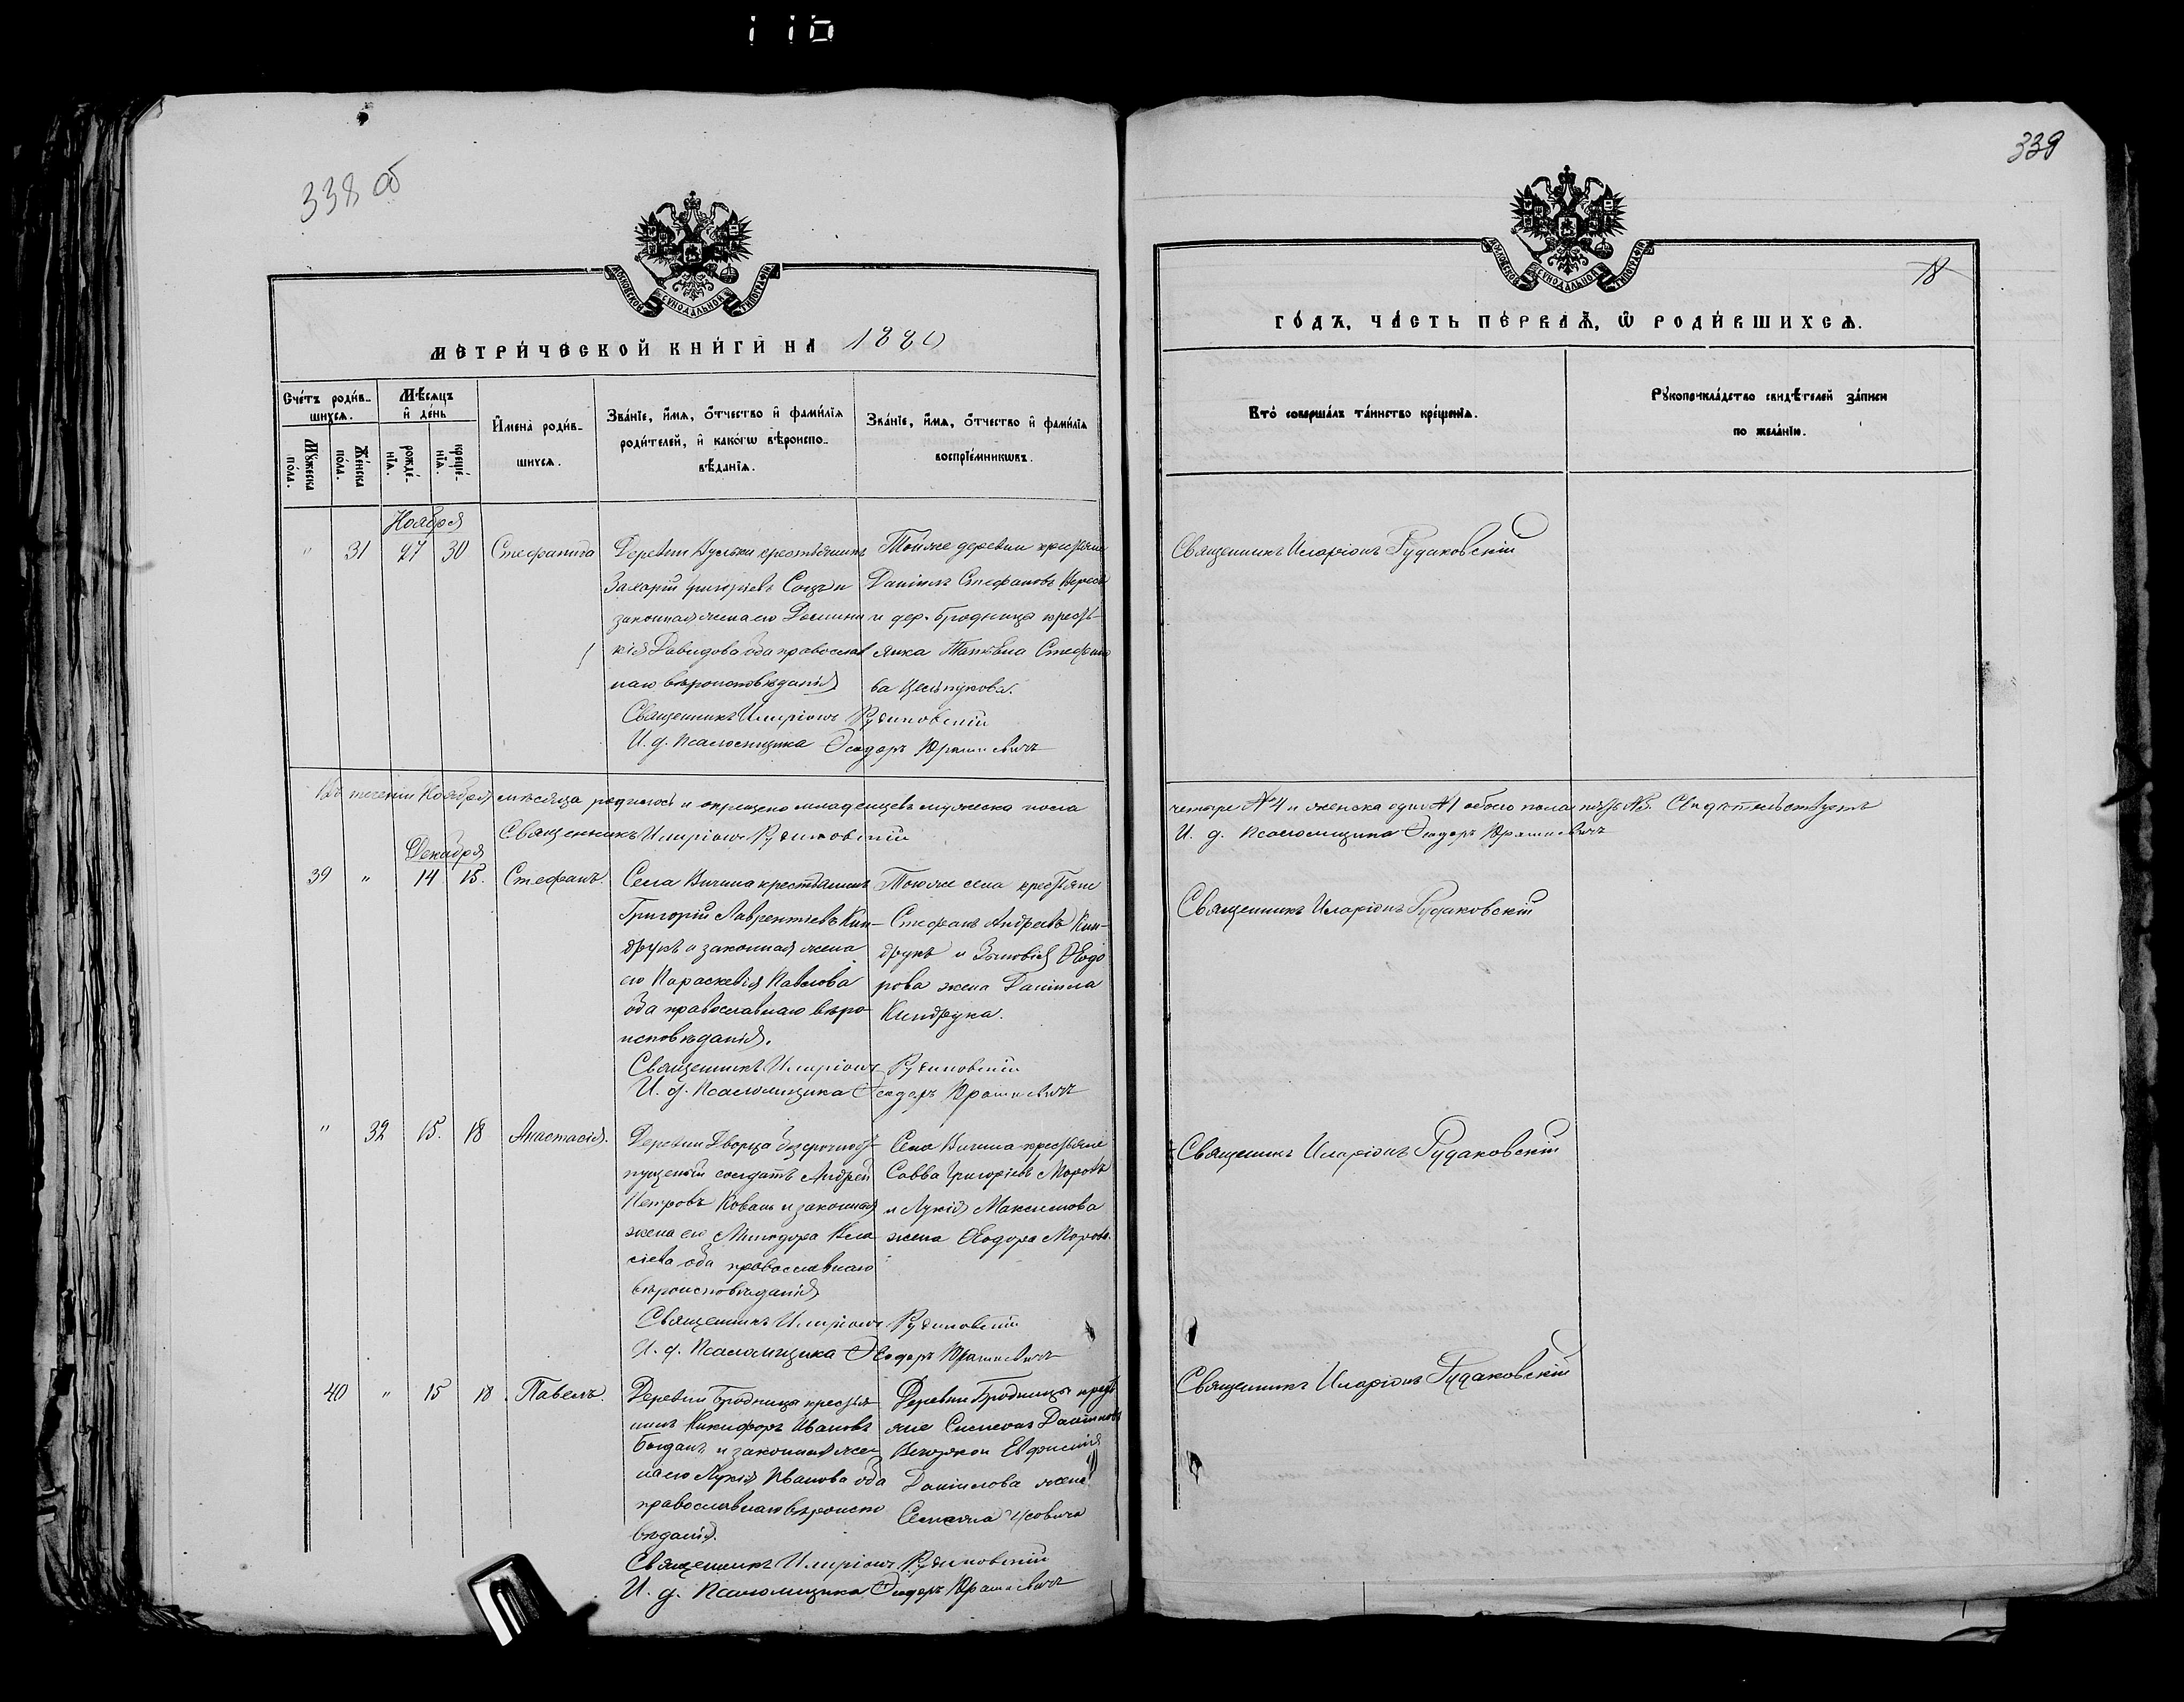 338 об
339
18
МОСКОВСКОЙ СѴНОДАЛЬНОЙ ТИПОГРАФІИ
МОСКОВСКОЙ СѴНОДАЛЬНОЙ ТИПОГРАФІИ
МЕТРИ́ЧЕСКОЙ КНИ́ГИ НА 1880
ГО́ДЪ, ЧА́СТЬ ПЕ́РВАѦ, Ѡ҆ РОДИ́ВШИХСѦ.
Сче́тъ роди́в-
шихсѧ.
Мꙋ́жеска по́ла.
Же́нска по́ла.
Мѣ́сѧцъ
и҆ де́нь
рожде́-нїѧ.
креще́-нїѧ.
И҆мена̀ роди́в-
шихсѧ.
Зва́нїе, и҆́мѧ, ѻ҆́тчество и҆ фами́лїѧ
роди́телей, и҆ како́гѡ вѣроиспо-
вѣ́данїѧ.
Зва́нїе, и҆́мѧ, ѻ҆́тчество и҆ фами́лїѧ
воспрїе́мникѡвъ.
Кто̀ соверша́лъ та́инство креще́нїѧ.
Рꙋкоприкла́дство свидѣ́телей за́писи
по жела́нїю.
Ноября
" 31 27 30 Стефанида
Деревни крестьянинъ
Захарій Григоріевъ и
законная жена его Домини-
кія Давидова оба православ
наго вѣроисповѣданія
Тойже деревни крестьяне
Даніилъ Стефановъ
и дер. Бродница кресть-
янка Татьяна Стефано
ва
Священникъ Иларіонъ Рудаковскій
Священникъ Иларіонъ Рудаковскій
И. д. Псаломщика Ѳеодоръ Юрашевичъ
Въ теченіи Ноября мѣсяца родилось и окрещено младенцевъ мужеска пола
четыре №4 и женска одинъ №1 обоего пола пять №5. Свидѣтельствуетъ
Священникъ Иларіонъ Рудаковскій
И. д. Псаломщика Ѳеодоръ Юрашевичъ
Декабря
39 " 14 15. Стефанъ.
Села Вичина крестьянинъ
Григорій Лаврентіевъ Кин-
друкъ и законная жена
его Параскевія Павлова
оба православнаго вѣро
исповѣданія.
Тогоже села крестьяне
Стефанъ Андреевъ Кин-
друкъ и Зиновія Ѳеодо
рова жена Даніила
Киндрука.
Священникъ Иларіонъ Рудаковскій
Священникъ Иларіонъ Рудаковскій
И. д. Псаломщика Ѳеодоръ Юрашевичъ
" 32 15. 18 Анастасія.
Деревни Дворца безсрочноот-
пущеный солдатъ Андрей
Петровъ Коваль и законная
жена его Минодора Вла
сіева оба православнаго
вѣроисповѣданія
Села Вичина крестьяне
Савва Григоріевъ Морозъ
и Лукія Максимова
жена Ѳеодора Мороза.
Священникъ Иларіонъ Рудаковскій
Священникъ Иларіонъ Рудаковскій
И. д. Псаломщика Ѳеодоръ Юрашевичъ
40 " 15 18 Павелъ.
Деревни Бродница крестья
нинъ Никифоръ Ивановъ
Богданъ и законная же
на его Лукія Иванова оба
православнаго вѣроиспо
вѣданія.
Деревни Бродницы кресть
яне Симеонъ Даніиловъ
Евфимія
Даніилова жена
Семена
Священникъ Иларіонъ Рудаковскій
Священникъ Иларіонъ Рудаковскій
И. д. Псаломщика Ѳеодоръ Юрашевичъ